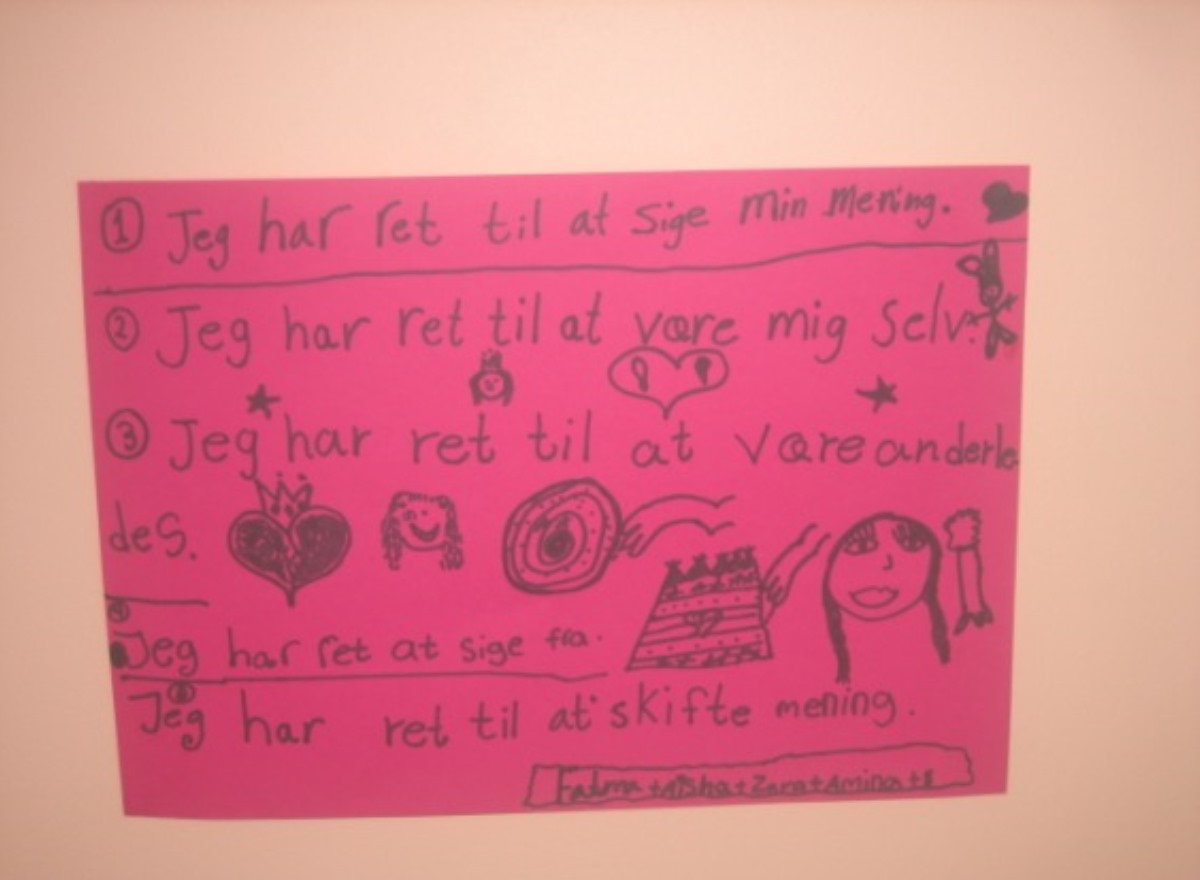 1 Jeg har ret til at sige min mening.
2 Jeg har ret til at være mig selv.
3 Jeg har ret til at være anderle
des.
4
Jeg har ret at sige fra.
5
Jeg har ret til at skifte mening.
Fatma + Aisha + Zara + Amina +